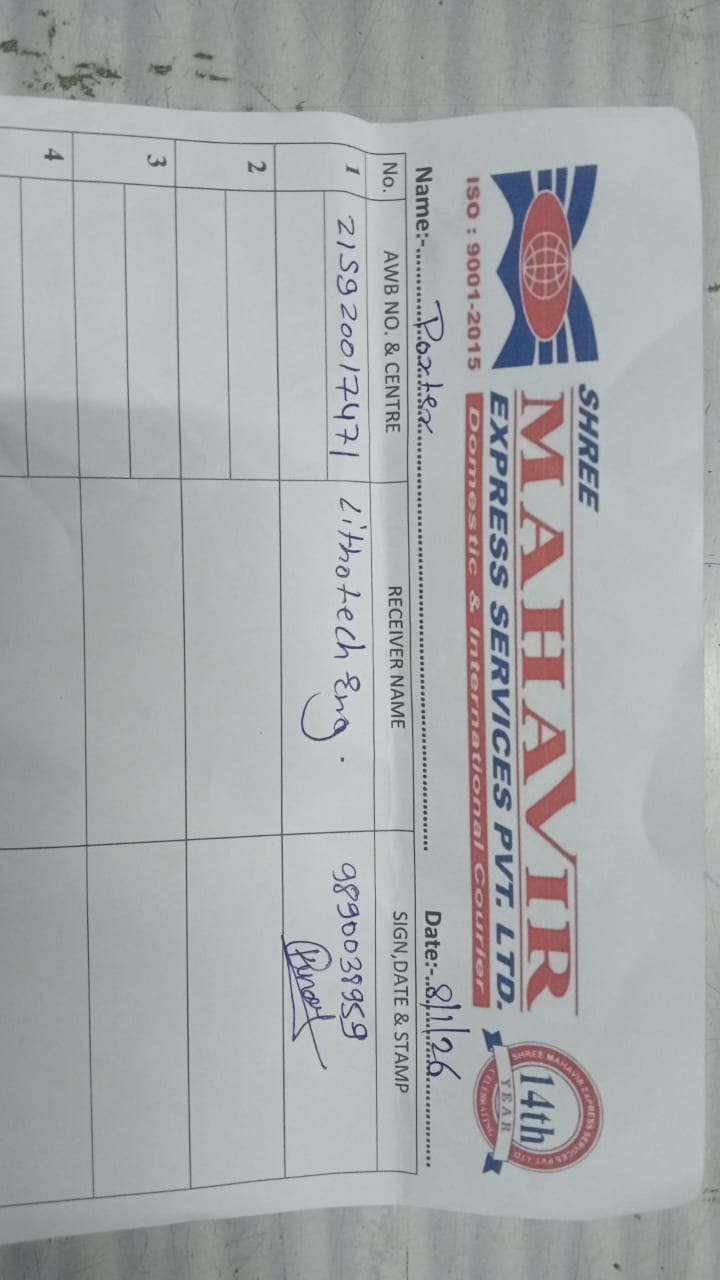 SHREE
MAHAVIR
EXPRESS SERVICES PVT. LTD.
ISO : 9001-2015 Domestic & International Courier
SHREE MAHAVIR EXPRESS SERVICES PVT. LTD
14th
YEAR
CELEBRATING
Name:- Porter Date:- 8/1/26
No. AWB NO. & CENTRE RECEIVER NAME SIGN,DATE & STAMP
1 215920017471 Lithotech Eng. 9890038959
2
3
4